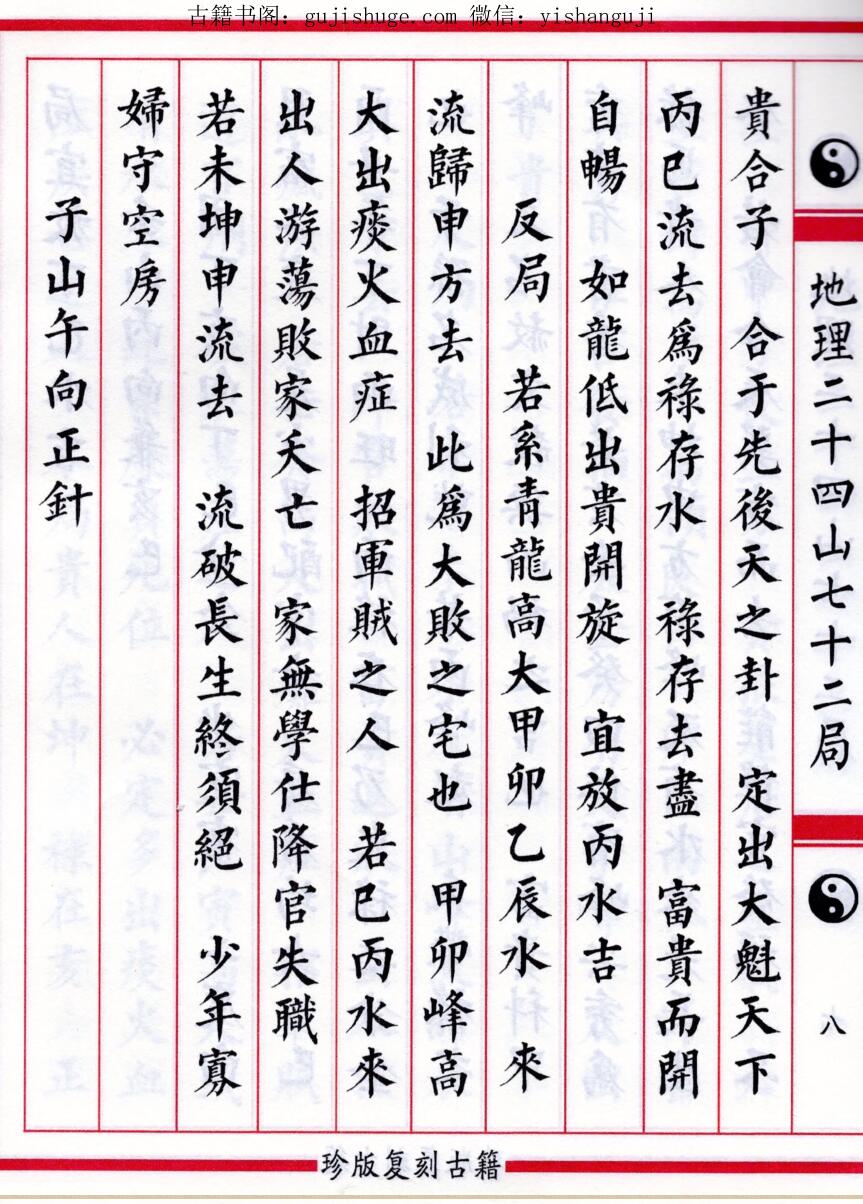 古籍书阁：gujishuge.com 微信：yishanguji
地理二十四山七十二局
八
貴合子　合于先後天之卦　定出大魁天下
丙巳流去爲祿存水　祿存去盡　富貴而開
自暢　如龍低出貴開旋　宜放丙水吉
反局　若系青龍高大甲卯乙辰水來
流歸申方去　此爲大敗之宅也　甲卯峰高
大出痰火血症　招軍賊之人　若巳丙水來
出人游蕩敗家夭亡　家無學仕降官失職
若未坤申流去　流破長生終須絕　少年寡
婦守空房
子山午向正針
珍版复刻古籍